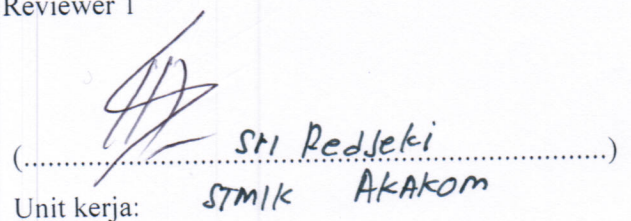 Reviewer 1
(..................Sri Redjeki..................)
Unit kerja: STMIK AKAKOM